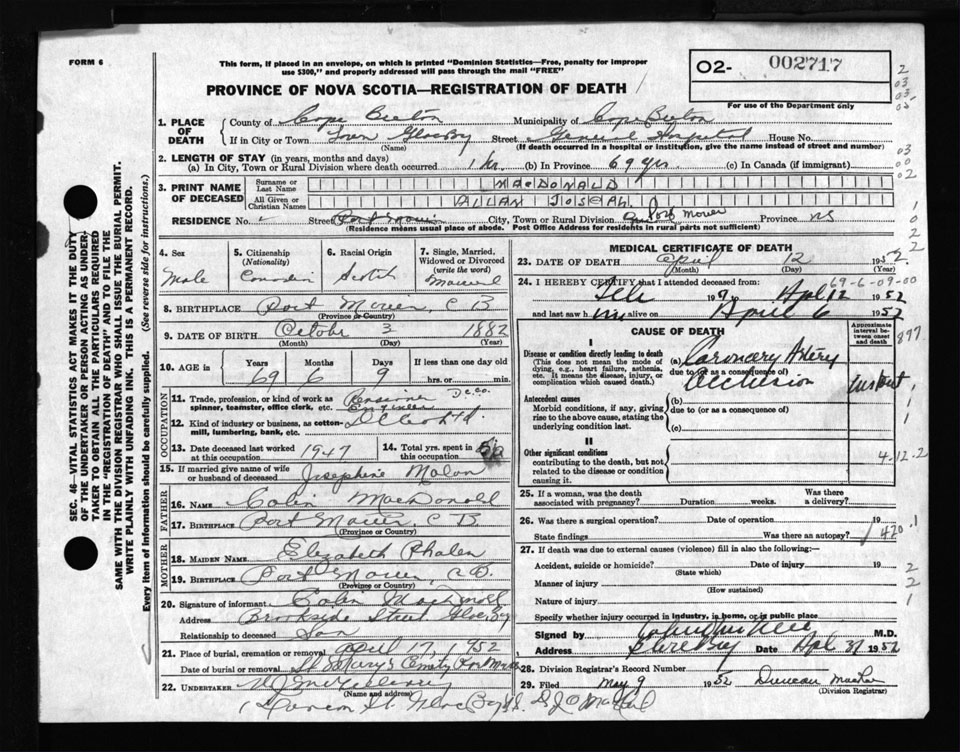 FORM 6
This form, if placed in an envelope, on which is printed "Dominion Statistics—Free, penalty for improper
use $300," and properly addressed will pass through the mail "FREE"
O2- 002717
PROVINCE OF NOVA SCOTIA—REGISTRATION OF DEATH
For use of the Department only
1. PLACE OF DEATH
County of Cape Breton Municipality of Cape Breton
If in City or Town Town Glace Bay Street General Hospital House No.
(Name) (If death occurred in a hospital or institution, give the name instead of street and number)
2. LENGTH OF STAY (in years, months and days)
(a) In City, Town or Rural Division where death occurred 1 hr. (b) In Province 69 yrs. (c) In Canada (if immigrant)
3. PRINT NAME OF DECEASED
Surname or Last Name MACDONALD
All Given or Christian Names ALLAN JOSEPH
RESIDENCE No. Street Port Morien City, Town or Rural Division Morien Province NS
(Residence means usual place of abode. Post Office Address for residents in rural parts not sufficient)
4. Sex Male
5. Citizenship (Nationality) Canadian
6. Racial Origin Scotch
7. Single, Married, Widowed or Divorced (write the word) Married
8. BIRTHPLACE Port Morien, C B
(Province or Country)
9. DATE OF BIRTH October 3 1882
(Month) (Day) (Year)
10. AGE in Years 69 Months 6 Days 9 If less than one day old
hrs. or min.
OCCUPATION
11. Trade, profession, or kind of work as spinner, teamster, office clerk, etc. Pensioner D.C.Co. Engineer
12. Kind of industry or business, as cotton-mill, lumbering, bank, etc.
13. Date deceased last worked at this occupation 1947
14. Total yrs. spent in this occupation 50
15. If married give name of wife or husband of deceased Josephine
FATHER
16. NAME Colin MacDonald
17. BIRTHPLACE Port Morien, C B.
(Province or Country)
MOTHER
18. MAIDEN NAME Elizabeth Phalen
19. BIRTHPLACE Port Morien, C B.
(Province or Country)
20. Signature of informant Colin MacDonald
Address Brookside Street Glace Bay
Relationship to deceased Son
21. Place of burial, cremation or removal April 17, 1952
Date of burial or removal St Marys Cemetry Port Morien
22. UNDERTAKER
(Name and address)
St. Glace Bay N.S.
MEDICAL CERTIFICATE OF DEATH
23. DATE OF DEATH April 12 1952
(Month) (Day) (Year)
24. I HEREBY CERTIFY that I attended deceased from: 69-6-09-00
19 Apl 12 1952
and last saw him alive on April 6 1952
CAUSE OF DEATH
Approximate interval between onset and death
I
Disease or condition directly leading to death (a) Coronary Artery
(This does not mean the mode of dying, e.g., heart failure, asthenia, etc. It means the disease, injury, or complication which caused death.)
due to (or as a consequence of) Occlusion
Antecedent causes
Morbid conditions, if any, giving rise to the above cause, stating the underlying condition last.
(b)
due to (or as a consequence of)
(c)
II
Other significant conditions
contributing to the death, but not related to the disease or condition causing it.
4-12-2
25. If a woman, was the death associated with pregnancy? Duration weeks. Was there a delivery?
26. Was there a surgical operation? Date of operation 19
State findings Was there an autopsy? 420.1
27. If death was due to external causes (violence) fill in also the following:—
Accident, suicide or homicide? Date of injury 19
(State which)
Manner of injury
(How sustained)
Nature of injury
Specify whether injury occurred in industry, in home, or in public place
Signed by M.D.
Address Glace Bay Date Apl 1952
28. Division Registrar's Record Number
29. Filed May 9 1952 Duncan
(Division Registrar)
SEC. 46—VITAL STATISTICS ACT MAKES IT THE DUTY
OF THE UNDERTAKER OR PERSON ACTING AS UNDER-
TAKER TO OBTAIN ALL THE PARTICULARS REQUIRED
IN THE "REGISTRATION OF DEATH" AND TO FILE THE
SAME WITH THE DIVISION REGISTRAR WHO SHALL ISSUE THE BURIAL PERMIT.
WRITE PLAINLY WITH UNFADING INK. THIS IS A PERMANENT RECORD.
Every item of information should be carefully supplied. (See reverse side for instructions.)